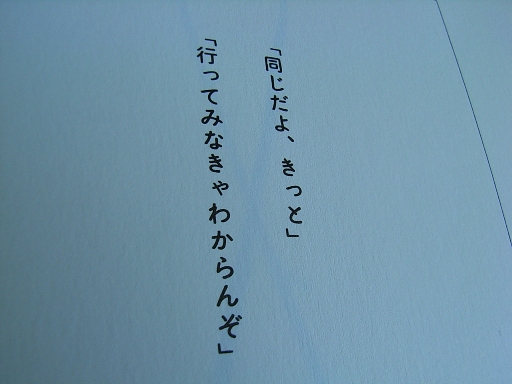 「同じだよ、きっと」
「行ってみなきゃわからんぞ」